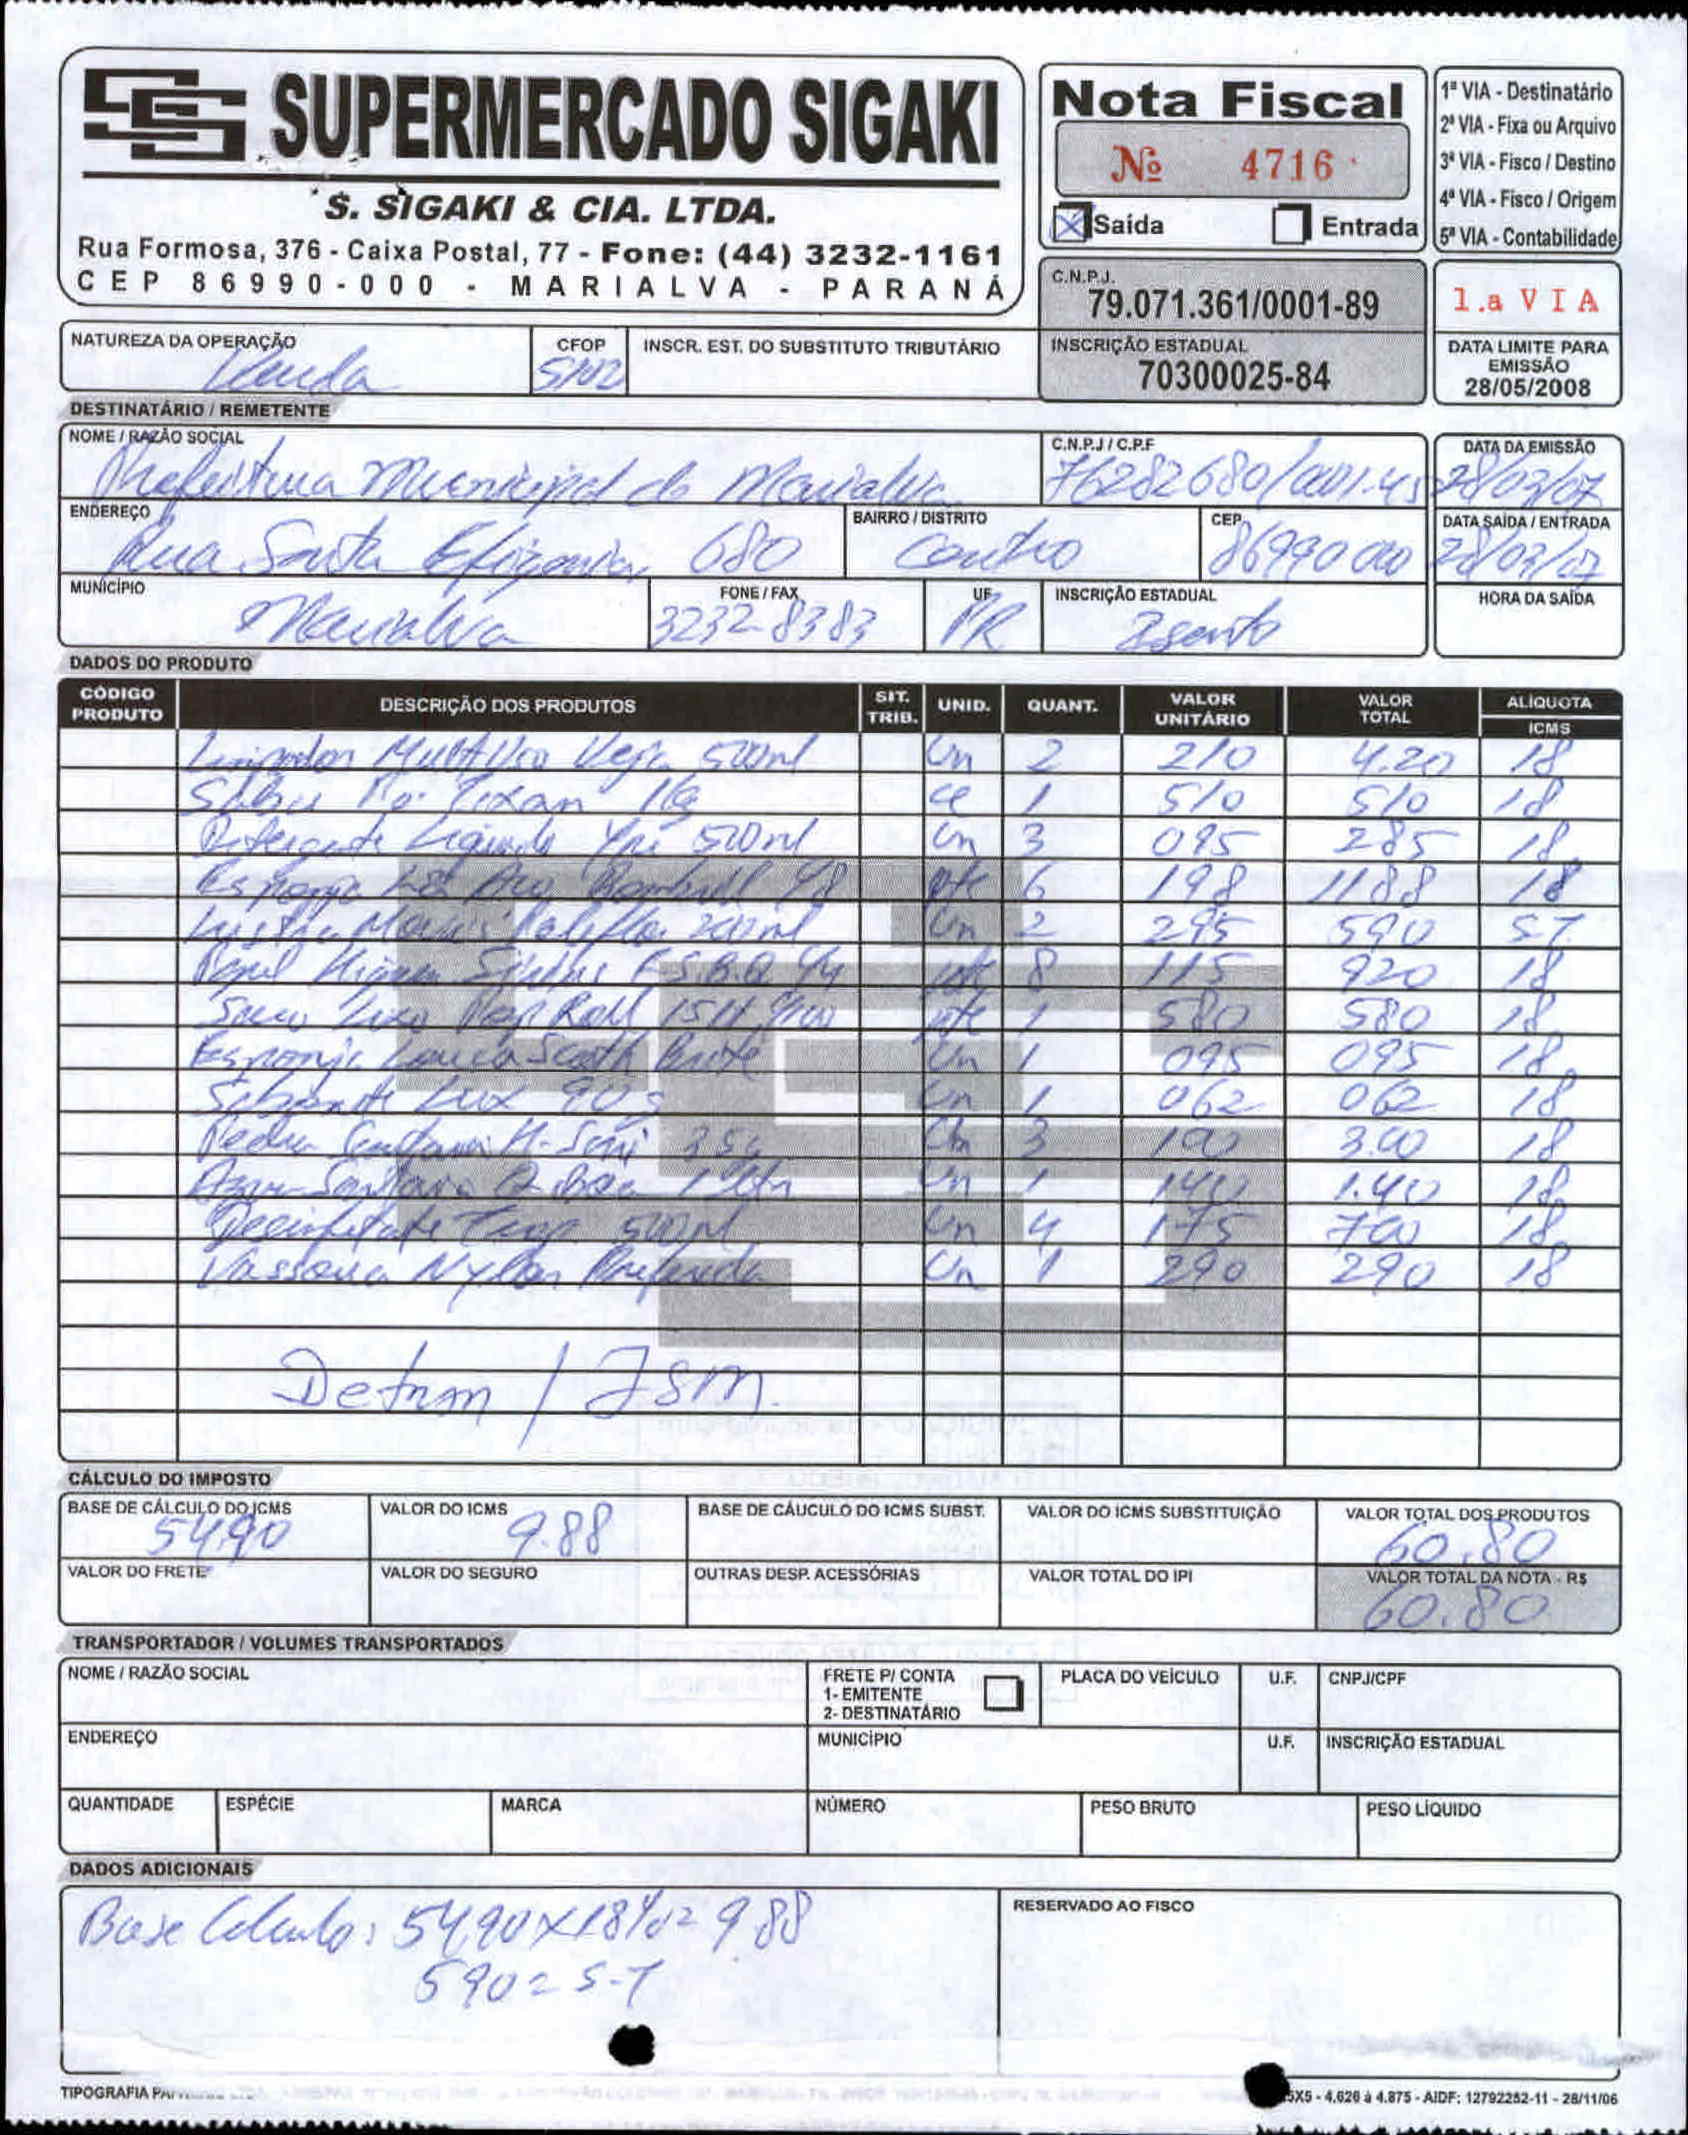 SUPERMERCADO SIGAKI
S. SIGAKI & CIA. LTDA.
Rua Formosa, 376 - Caixa Postal, 77 - Fone: (44) 3232-1161
CEP 86990-000 - MARIALVA - PARANÁ
Nota Fiscal
Nº 4716
X Saída Entrada
1ª VIA - Destinatário
2ª VIA - Fixa ou Arquivo
3ª VIA - Fisco / Destino
4ª VIA - Fisco / Origem
5ª VIA - Contabilidade
C.N.P.J.
79.071.361/0001-89
1.a VIA
NATUREZA DA OPERAÇÃO CFOP INSCR. EST. DO SUBSTITUTO TRIBUTÁRIO
Venda 5102
INSCRIÇÃO ESTADUAL
70300025-84
DATA LIMITE PARA
EMISSÃO
28/05/2008
DESTINATÁRIO / REMETENTE
NOME / RAZÃO SOCIAL C.N.P.J / C.P.F DATA DA EMISSÃO
Prefeitura Municipal de Marialva 76282680/001.45 28/03/07
ENDEREÇO BAIRRO / DISTRITO CEP DATA SAÍDA / ENTRADA
Rua Santa Efigenia 680 Centro 86990 000 28/03/07
MUNICÍPIO FONE / FAX UF INSCRIÇÃO ESTADUAL HORA DA SAÍDA
Marialva 3232-8383 PR Isento
DADOS DO PRODUTO
CÓDIGO PRODUTO DESCRIÇÃO DOS PRODUTOS SIT. TRIB. UNID. QUANT. VALOR UNITÁRIO VALOR TOTAL ALÍQUOTA ICMS
Limpador Multi Uso Veja 500ml Un 2 210 4.20 18
Sabão Pó Tixan 1Kg 1 510 510 18
Detergente Liquido Ypê 500ml Un 3 095 285 18
Esponja Lã Aço Bombril pte 6 198 1188 18
Lustra Moveis Poliflor 200ml Un 2 295 590 S.T.
Papel Higien F.S.B.Q. pte 8 115 920 18
Saco Lixo Roll 15lt pte 1 580 580 18
Esponja Louca Scoth Brite Un 1 095 095 18
Sabonete Lux 90g Un 1 062 062 18
Pedra Sanitaria 35g Un 3 100 3.00 18
Agua Sanitaria Q.Boa 1 Litro Un 1 140 1.40 18
Desinfetante 500ml Un 4 175 700 18
Vassoura Nylon Preferida Un 1 290 290 18
Detran / JSM.
CÁLCULO DO IMPOSTO
BASE DE CÁLCULO DO ICMS VALOR DO ICMS BASE DE CÁUCULO DO ICMS SUBST. VALOR DO ICMS SUBSTITUIÇÃO VALOR TOTAL DOS PRODUTOS
54,90 9.88 60.80
VALOR DO FRETE VALOR DO SEGURO OUTRAS DESP. ACESSÓRIAS VALOR TOTAL DO IPI VALOR TOTAL DA NOTA - R$
60.80
TRANSPORTADOR / VOLUMES TRANSPORTADOS
NOME / RAZÃO SOCIAL FRETE P/ CONTA PLACA DO VEÍCULO U.F. CNPJ/CPF
1- EMITENTE
2- DESTINATÁRIO
ENDEREÇO MUNICÍPIO U.F. INSCRIÇÃO ESTADUAL
QUANTIDADE ESPÉCIE MARCA NÚMERO PESO BRUTO PESO LÍQUIDO
DADOS ADICIONAIS
Base Calculo: 54,90 x 18% = 9.88
590 = S-T
RESERVADO AO FISCO
TIPOGRAFIA
5X5 - 4.626 à 4.875 - AIDF: 12792252-11 - 28/11/06